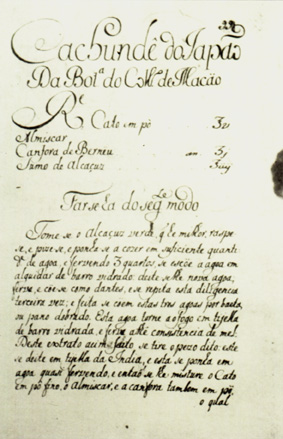 Cachundé do Japaõ
Da Bot.ª do Coll.º de Macáo
Rᵉ
Cato em pó 3v
Almiscar
Canfora de Berneu
Sumo de Alcaçuz
Farseha do seg.te modo
Tome se o Alcaçuz verde, q' he melhor, raspe
se, e pize se, e ponha se a cozer em suficiente quanti
de de agoa, e fervendo 3 quartos, se escoe a agoa em
alguidar de barro vidrado: deite se lhe nova agoa,
ferva, e coe se como dantes, e se repita esta diligencia
terceira vez; e feita se coem estas tres agoas por baeta,
ou pano dobrado. Esta agoa torne ao fogo em tigella
de barro vidrada, e ferva athé consistencia de mel.
Deste extrato acima se tire o pezo dito, este
se deite em tigella da India, e esta se ponha em
agoa quasi fervendo, e entaõ se lhe misture o Cato
em pó fino, o Almiscar, e a canfora tambem em pó,
o qual